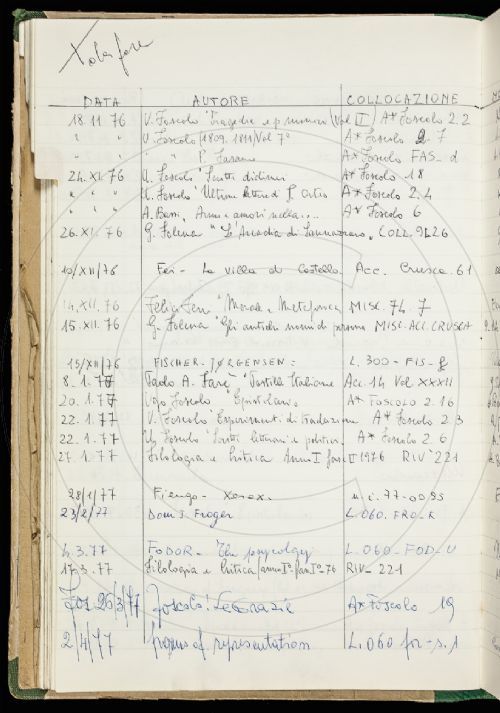 DATA AUTORE COLLOCAZIONE
18.11.76 U. Foscolo Tragedie e p (Vol II) A* Foscolo 2.2
" " U. Foscolo (1809.1811) Vol 7° A* Foscolo 2.7
" " " " A* Foscolo FAS-d
24.XI.76 U. Foscolo Scritti didimei A* Foscolo 18
" " " U. Foscolo Ultime lettere di J. Ortis A* Foscolo 2.4
" " " A. , Armi e amori nella... A* Foscolo 6
26.XI.76 G. Folena "L'Arcadia di Sannazaro" COLL. 9L26
10/XII/76 - La villa di Castello Acc. Crusca 61
14.XII.76 "Morale e Metafisica MISC. 74.7
15.XII.76 G. Folena "Gli antichi nomi di persona MISC. ACC. CRUSCA
15/XII/76 FISCHER-JØRGENSEN = L. 300-FIS-f
8.1.77 Paolo A. Farè "Postille Italiane Acc. 14 Vol XXXII
20.1.77 Ugo Foscolo "Epistolario A* FOSCOLO 2.16
22.1.77 U. Foscolo Esperimenti di traduzione A* Foscolo 2.3
22.1.77 U. Foscolo Scritti letterari e politici A* Foscolo 2.6
27.1.77 Filologia e Critica Anno I fasc II 1976 RIV 221
28/1/77 Fiengo - Xerox. m.i. 77-0095
23/2/77 Dom J. Froger L. 060. FRO-R
4.3.77 FODOR - The psycology L. 060-FOD-U
17.3.77 Filologia e Critica (anno I° fas I°-76 RIV-221
26/3/77 Foscolo: Le Grazie A* Foscolo 19
2/4/77 of representation L. 060 for-s.1